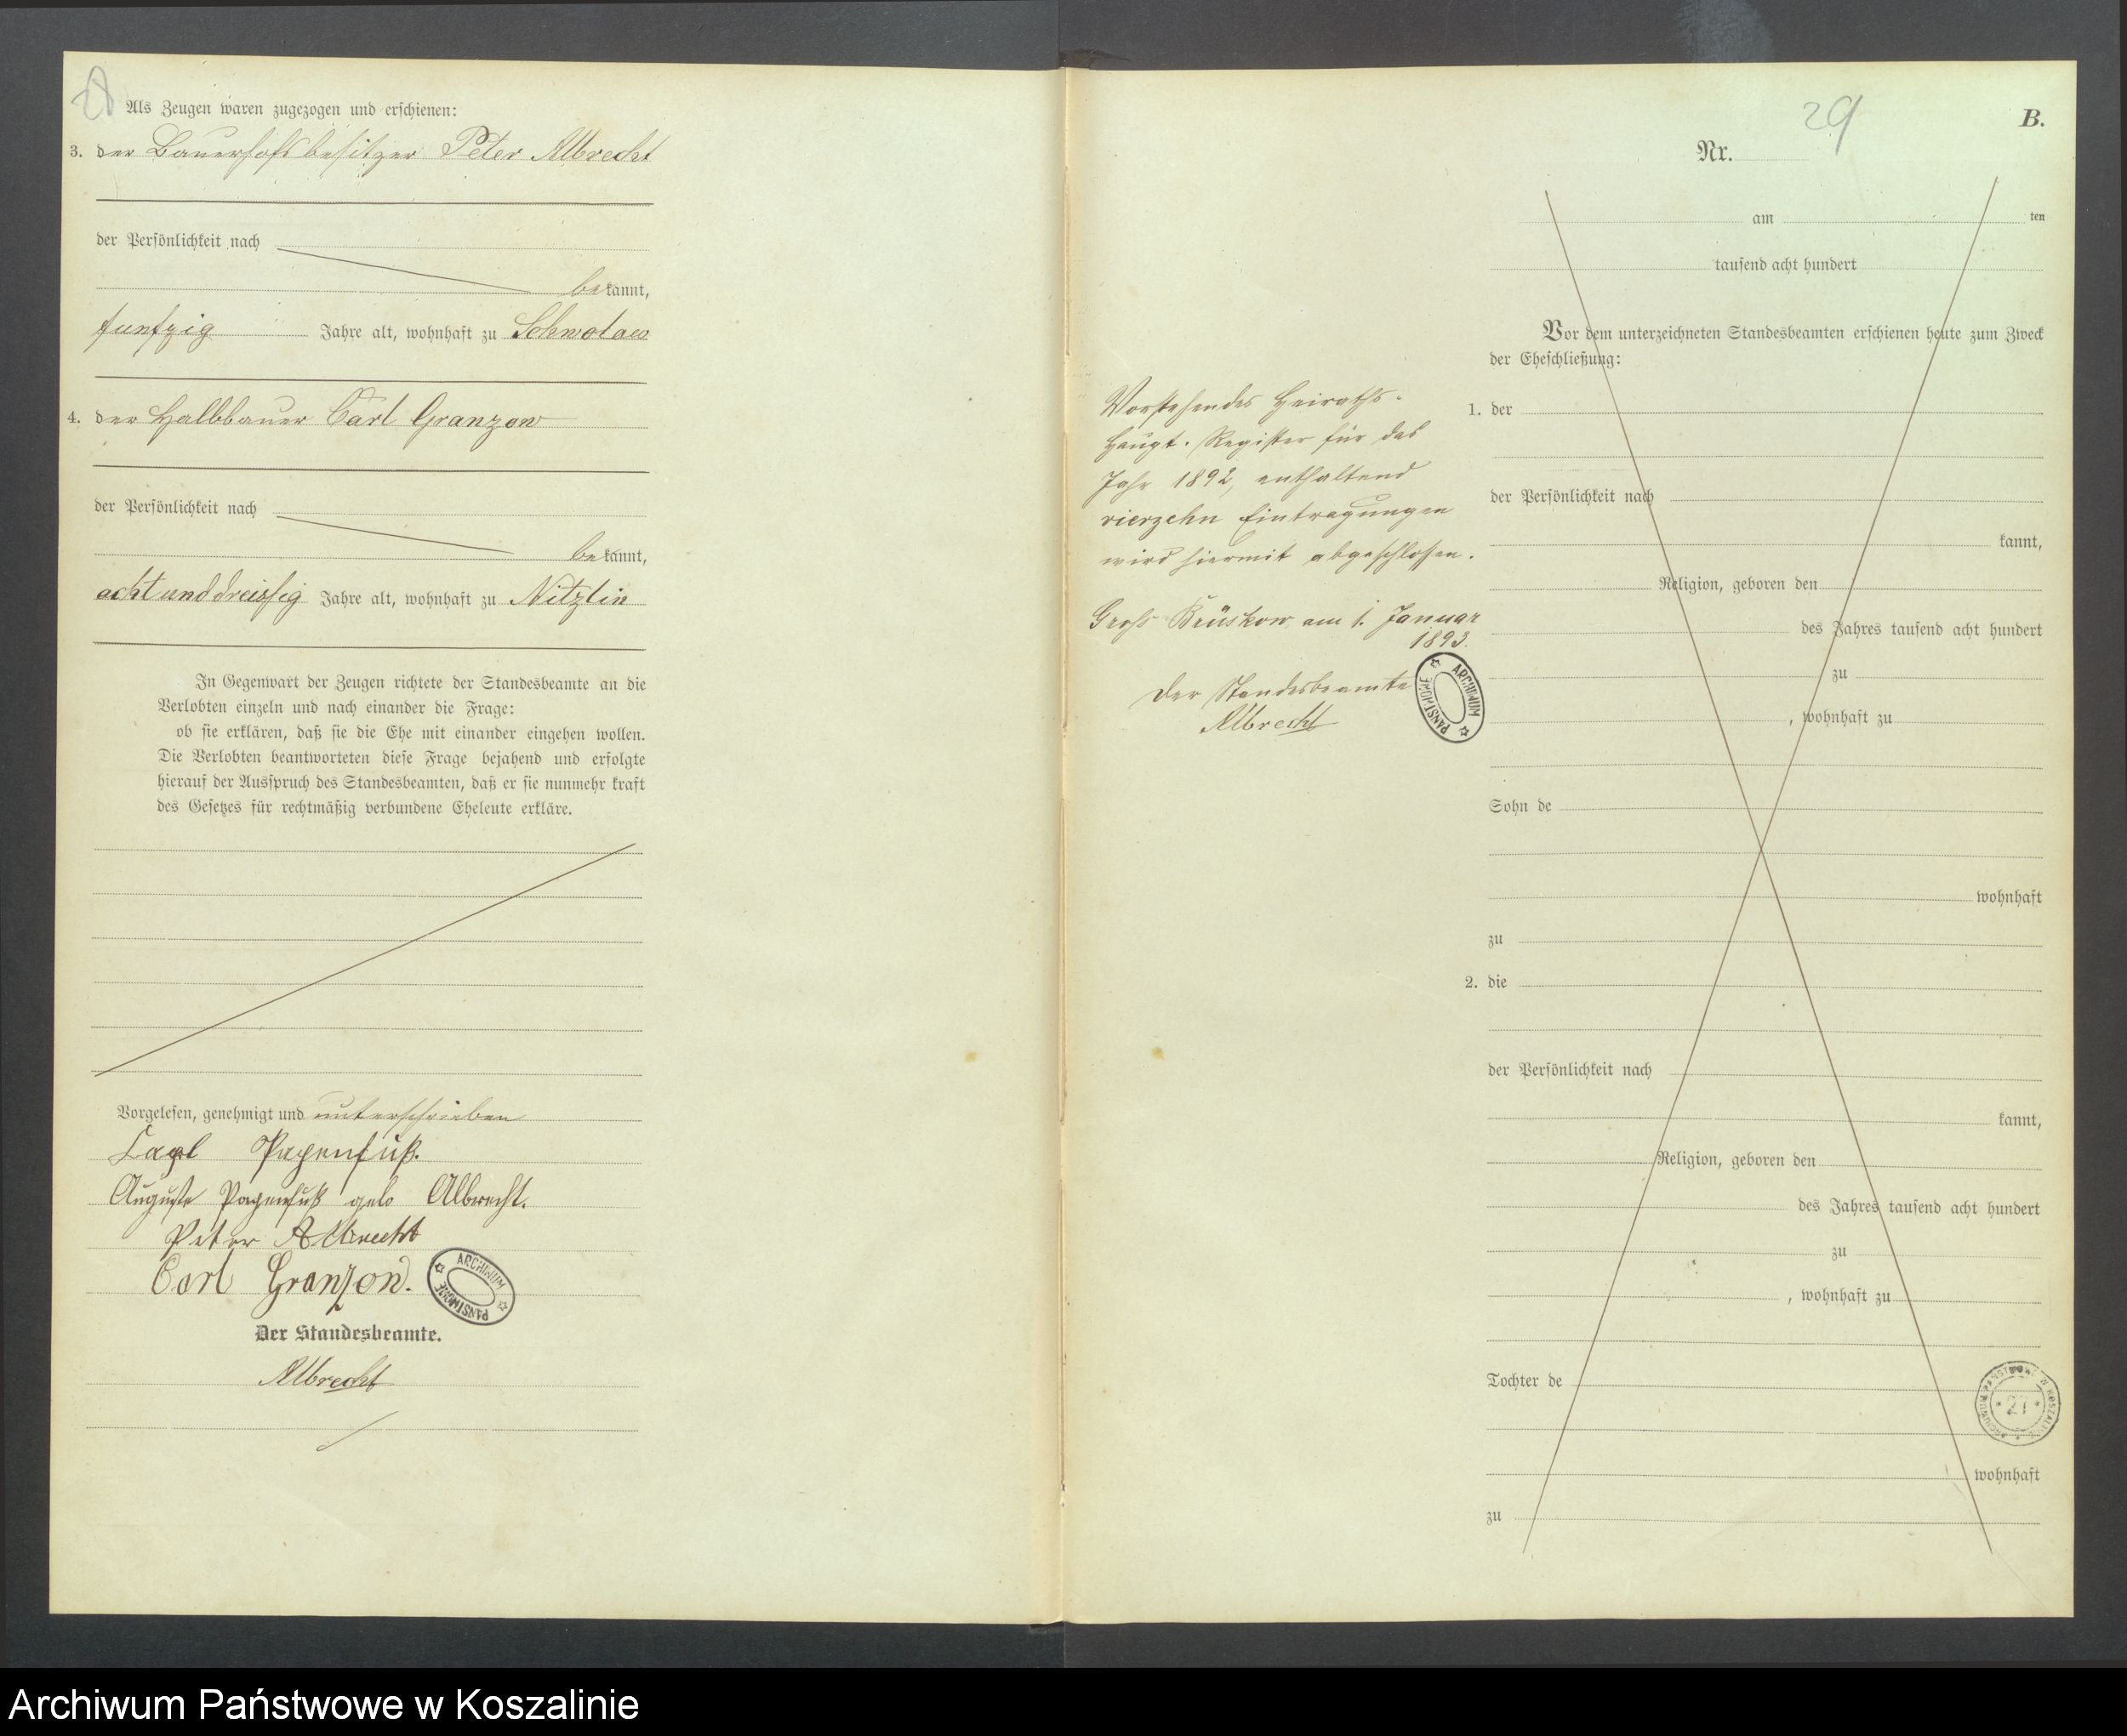 28
Als Zeugen waren zugezogen und erschienen:
3. der Bauerhofsbesitzer Peter Albrecht
der Persönlichkeit nach
bekannt,
funfzig Jahre alt, wohnhaft zu Schwolow
4. der Halbbauer Carl Granzow
der Persönlichkeit nach
bekannt,
achtunddreissig Jahre alt, wohnhaft zu Nitzlin
In Gegenwart der Zeugen richtete der Standesbeamte an die
Verlobten einzeln und nach einander die Frage:
ob sie erklären, daß sie die Ehe mit einander eingehen wollen.
Die Verlobten beantworteten diese Frage bejahend und erfolgte
hierauf der Ausspruch des Standesbeamten, daß er sie nunmehr kraft
des Gesetzes für rechtmäßig verbundene Eheleute erkläre.
Vorgelesen, genehmigt und unterschrieben
Carl Papenfuß.
Auguste Papenfuß geb Albrecht.
Peter Albrecht
Carl Granzow.
ARCHIWUM PAŃSTWOWE
Der Standesbeamte.
Albrecht
Vorstehendes Heiraths-
Haupt-Register für das
Jahr 1892, enthaltend
vierzehn Eintragungen
wird hiermit abgeschlossen.
Gross Brüskow am 1. Januar
1893.
Der Standesbeamte
Albrecht
ARCHIWUM PAŃSTWOWE
29
B.
Nr.
am ten
tausend acht hundert
Vor dem unterzeichneten Standesbeamten erschienen heute zum Zweck
der Eheschließung:
1. der
der Persönlichkeit nach
kannt,
Religion, geboren den
des Jahres tausend acht hundert
zu
, wohnhaft zu
Sohn de
wohnhaft
zu
2. die
der Persönlichkeit nach
kannt,
Religion, geboren den
des Jahres tausend acht hundert
zu
, wohnhaft zu
Tochter de
ARCHIWUM PAŃSTWOWE W KOSZALINIE
27
wohnhaft
zu
Archiwum Państwowe w Koszalinie